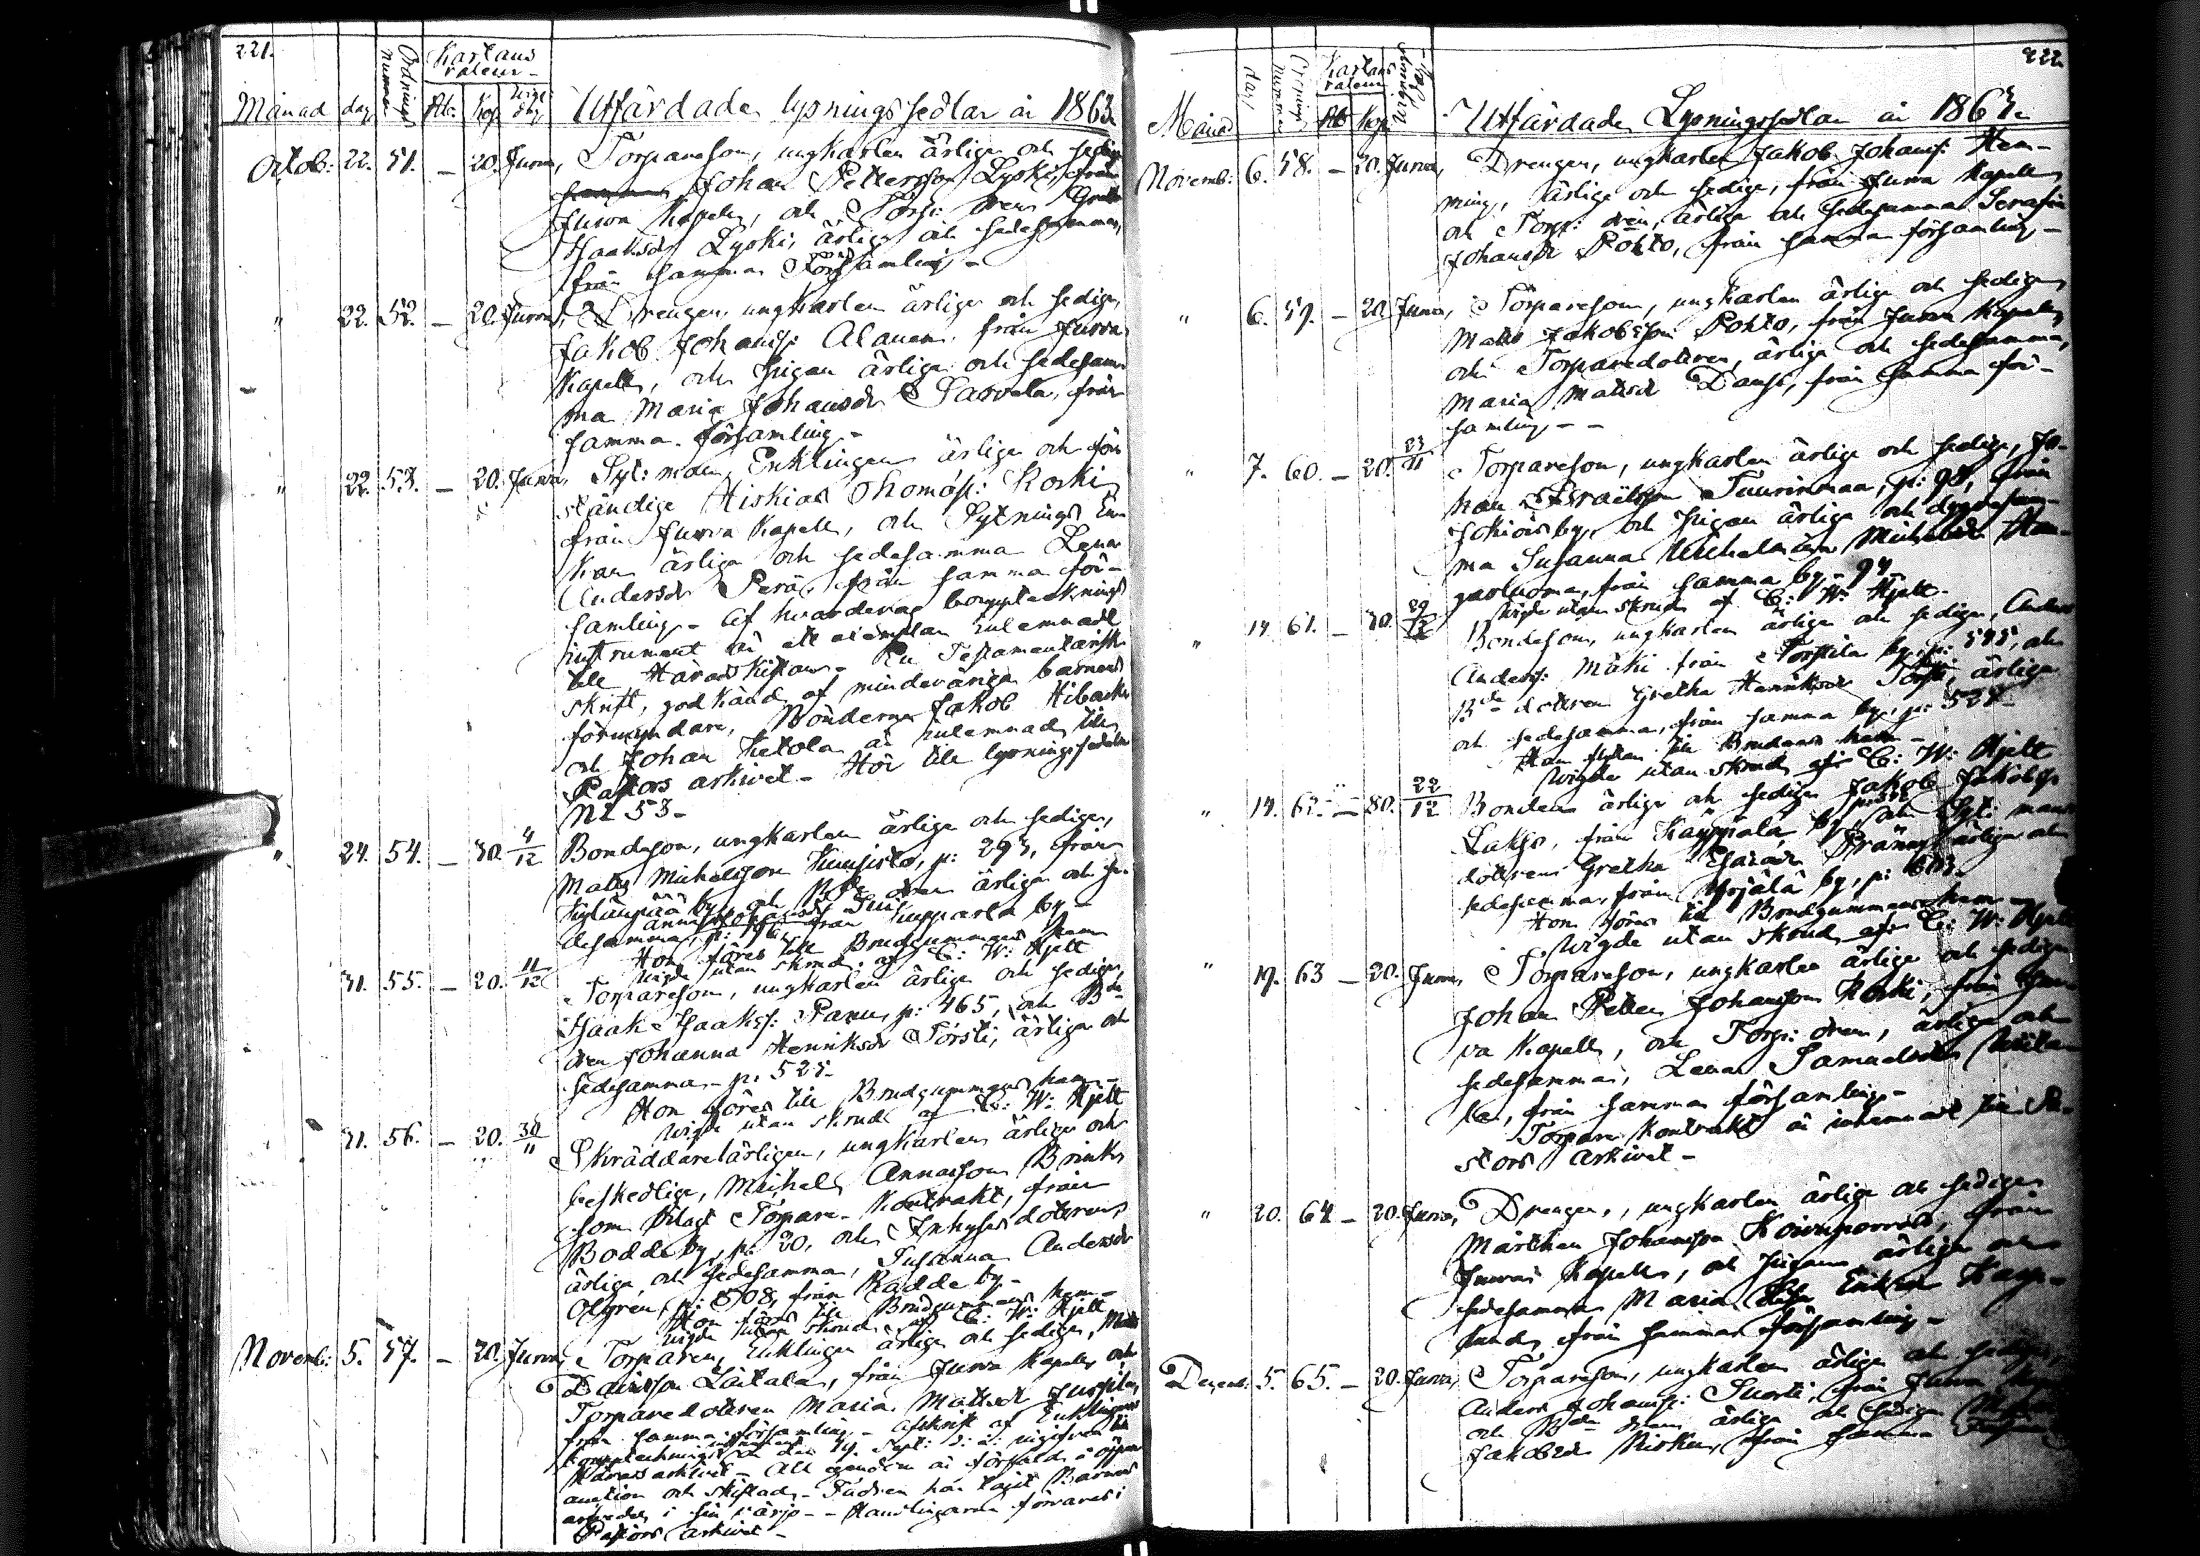 221.
Ordnings nummer
Kartans valeur
Månad dag Rb: Kop. Utfärdade lysningssedlar år 1863.
Octob: 22. 51. – 20. Jurva, Torpareson, ungkarlen ärlige och sedige
Johan Pettersson Lyski, från
Jurva Kapell, och Torp: dren Greta
Isaaksdr Lyski, ärliga och sedesamma,
från samma Församling –
" 22. 52. – 20. Jurva, Drengen, ungkarlen ärlige och sedige,
Jakob Johanss: Alanen, från Jurva
Kapell, och Pigan ärliga och sedesam-
ma Maria Johansdr Sarvela, från
samma församling –
" 22. 53. – 20. Jurva, Syt: man, Enklingen ärlige och för-
ståndige Hiskias Thomass: Koski
från Jurva Kapell, och Sytnings En-
kan ärliga och sedesamma Lena
Andersdr Perä, från samma för-
samling – Af hvardera bouppteknings
instrument är ett exemplar inlemnadt
till Häradskistan – En Testamentarisk
skrift, godkänd af minderåriga barnens
förmyndare, Bönderne Jakob Hibacka
och Johan Ketola är inlemnad till
Pastors arkivet – Hör till lysningssedeln
N: 53 –
" 24. 54. – 30. 4/12 Bondeson, ungkarlen ärlige och sedige,
Matts Michelsson Kuusisto, p: 293, från
Kylänpää by, och Bde dren ärliga och se-
desamma, från Kupparla by –
Hon föres till Brudgummens hem
Wigde utan skrud af C: W: Hjelt
31. 55. – 20. 11/12 Torpareson, ungkarlen ärlige och sedige,
Isaak Isakss: Panu, p: 465, och Bde
dren Johanna Henriksdr Törsti, ärliga och
sedesamma – p. 525 –
Hon föres till Brudgummens hem –
Wigde utan skrud af C: W: Hjelt
31. 56. – 20. 30/11 Skräddarelärlingen, ungkarlen ärlige och
beskedlige, Michel Annasson Brink
som tilagt Torpare-Kontrakt, från
Bodde by, p: 20, och Inhyses dotren,
ärliga och sedesamma, Susanna Andersdr
Olgren, p: 508, från Radde by –
Hon föres till Brudgummens hem –
Wigde utan skrud af C: W: Hjelt
Novemb: 5. 57. – 20. Jurva, Torparen, Enklingen ärlige och sedige, Matts
Davidsson Laitala, från Jurva Kapell, och
Torparedotren Maria Mattsdr Jussila,
från samma församling – Afskrift af Enklingens
bouppteckningsinstrument är den 19. Sept: d: å: ingifven till
Häradsarkivet – All egendom är försåld å öppen
auktion och skiftad – Fadren har tagit Barnens
arfvedel i sin värjo – Handlingarna förvaras i
Pastors arkivet –
222.
dag
Ordnings nummer
Kartans valeur
Månad Rb Kop Utfärdade Lysningssedlar år 1863.
Novemb: 6. 58. – 20. Jurva, Drengen, ungkarlen Jakob Johanss: Hem-
ming, ärlige och sedige, från Jurva Kapell
och Torp: dren, ärliga och sedesamma Serafia
Johansdr Pohto, från samma församling –
" 6. 59. – 20. Jurva, Torpareson, ungkarlen ärlige och sedige,
Matts Jakobsson Pohto, från Jurva Kapell,
och Torparedotren, ärliga och sedesamma,
Maria Mattsdr Daufs, från samma för-
samling – –
" 7. 60. – 20. 23/11 Torpareson, ungkarlen ärlige och sedige, Jo-
han Israelsson Tuurinmaa, p: 98, från
Jokiöis by, och Pigan ärliga och dygdesam-
ma Susanna Michelsdr Han-
garluoma, från samma by – 94
Wigde utan skrud af C: W: Hjelt –
" 14. 61. – 30. 29/12 Bondeson, ungkarlen ärlige och sedige, Anders
Anderss: Mäki från Torstila by, p: 545, och
Bde dotren Gretha Henriksdr Törsti, ärliga
och sedesamma, från samma by, p: 525 –
Han flyttar till Brudens hem –
Wigde utan skrud af C: W: Hjelt
" 14. 62. – 80. 22/12 Bonden ärlige och sedige Jakob Jakobss:
Luhys, från Kauppila by, och Syt: mans
dotren Gretha Esaiædr Pränny, ärliga och
sedesamma, från Yrjälä by, p: 603.
Hon föres till Brudgummens hem –
Wigde utan skrud af C: W: Hjelt
" 19. 63 – 20. Jurva, Torpareson, ungkarlen ärlige och sedige
Johan Petter Johansson Koski, från Jur-
va Kapell, och Torp: dren, ärliga och
sedesamma, Lena Samuelsdr
la, från samma församling –
Torpare Kontrakt är inlemnadt till Pa-
stors arkivet –
" 20. 64 – 20. Jurva, Drengen, ungkarlen ärlige och sedige
Märthen Johansson Koivuporras, från
Jurva Kapell, och Pigan ärliga och
sedesamma Maria Eriksdr Karp-
lund, från samma församling –
Decemb: 5. 65. – 20. Jurva, Torpareson, ungkarlen ärlige och sedige,
Anders Johanss: Suosti, från Jurva
och Bde dren ärliga och sediga
Jakobsdr Niska, från samma